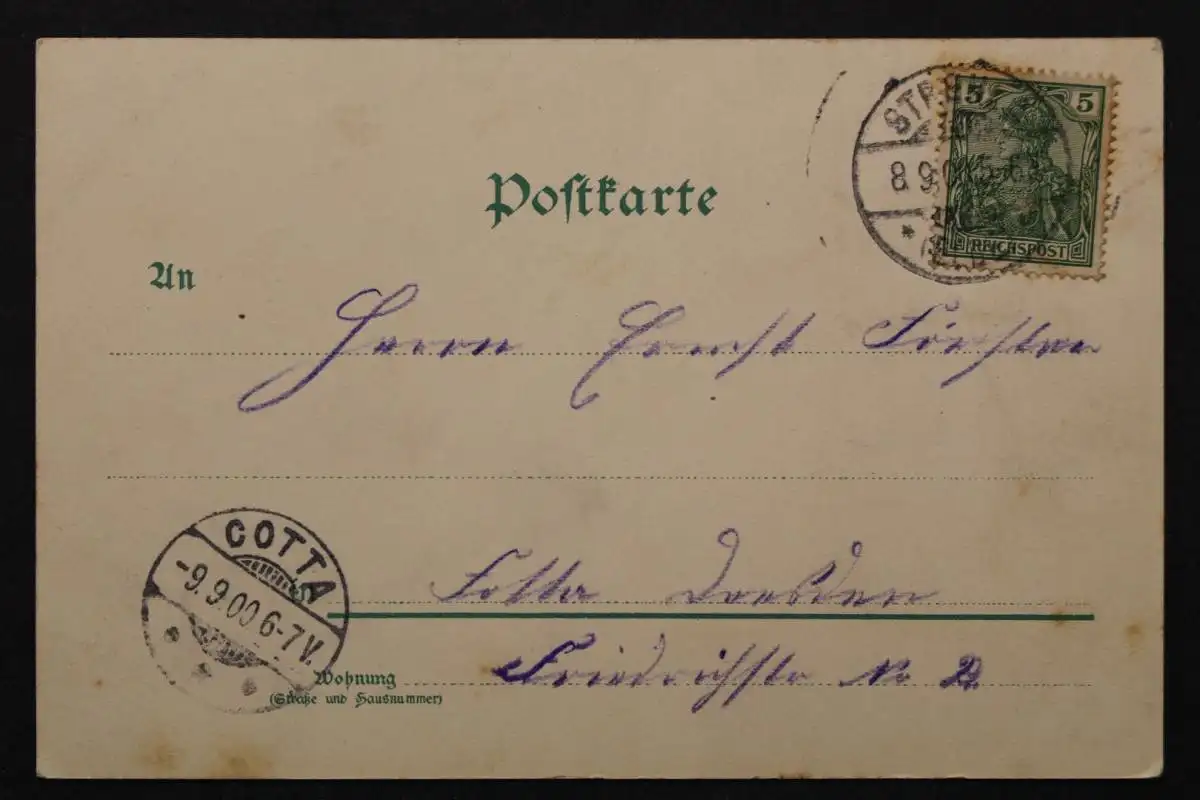 5 5
8.9.0
REICHSPOST
Postkarte
An
Herrn Ernst Förster
COTTA
-9.9.00 6-7V.
Cotta Dresden
Wohnung
(Straße und Hausnummer)
Friedrichstr No 2